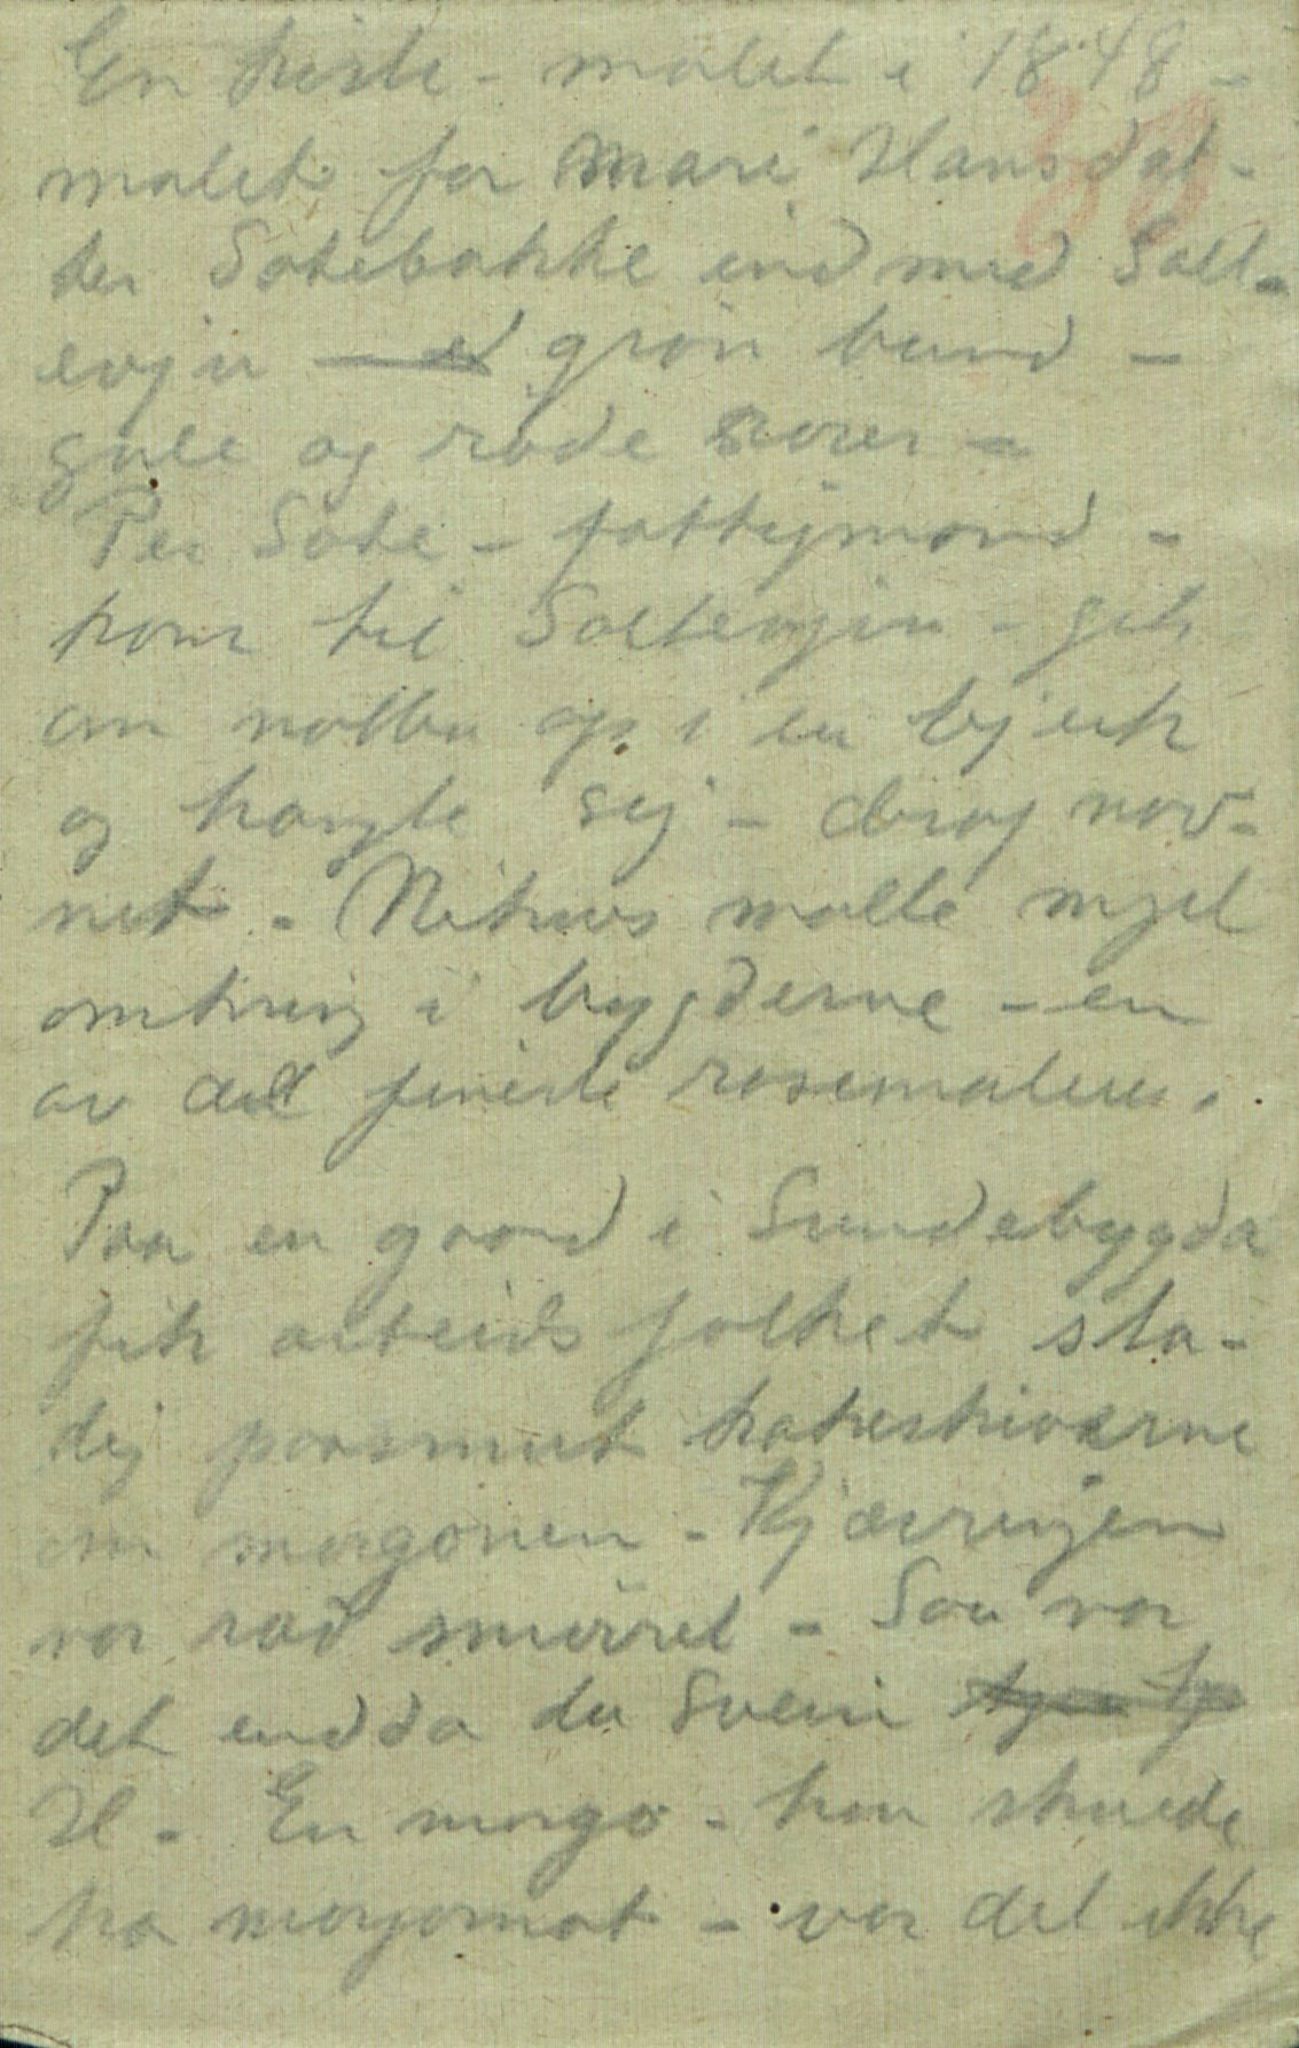 En kiste - malet i 1848 -
malet for Mari Hansdat-
ter Sotebakke ind med Salt-
evju - grøn bund -
gule og røde roser -
Per Sote - fattigmand -
kom til Saltevjen - gik
om natten op i en bjerk
og hengte sig - drog nav-
net. malte mjel
omkring i bygderne - en
av de fineste rosemalere.
Paa en gaard i Sundebygda
fik arbeidsfolket sta-
dig paasmurt kakeskiverne
om morgonen - Kjærringen
var rad smørret - Saa var
det endda da Svein
H - En morgo - han skuede
ha morgomat - var det ikke